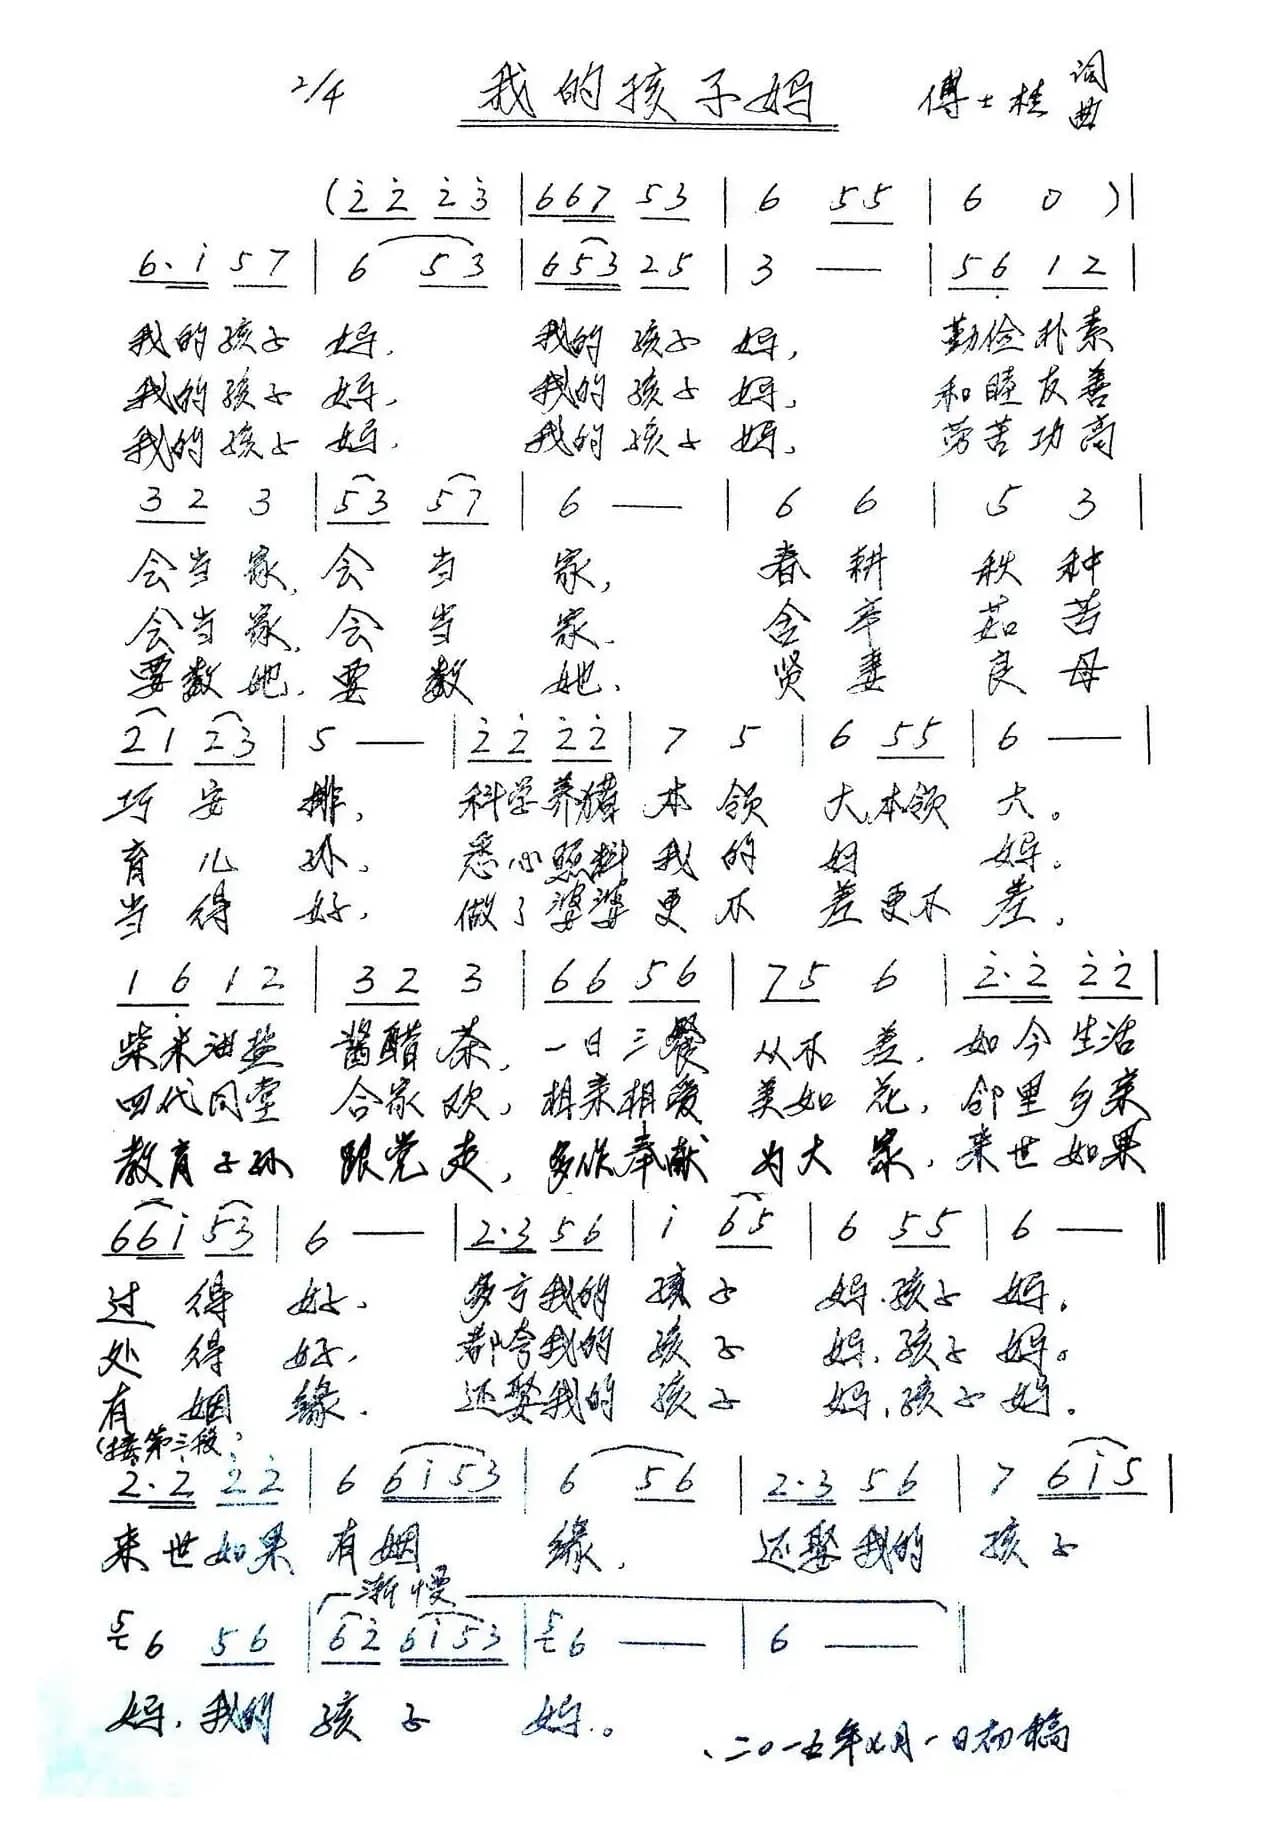 2/4 我的孩子妈 傅士桂 词曲
(2̇ 2̇ 2̇ 3̇ | 6 6 7 5 3 | 6 5 5 | 6 0 ) |
6 · 1̇ 5 7 | 6 5 3 | 6 5 3 2 5 | 3 — | 5 6̣ 1 2 |
我的孩子 妈, 我的孩子 妈, 勤俭朴素
我的孩子 妈, 我的孩子 妈, 和睦友善
我的孩子 妈, 我的孩子 妈, 劳苦功高
3 2 3 | 5 3 5 7 | 6 — | 6 6 | 5 3 |
会当家, 会当家, 春耕 秋种
会当家, 会当家. 含辛 茹苦
要数她, 要数她. 贤妻 良母
2 1 2 3 | 5 — | 2̇ 2̇ 2̇ 2̇ | 7 5 | 6 5 5 | 6 — |
巧安排, 科学养猪 本领 大,本领 大。
育儿孙, 悉心照料 我的 妈 妈。
当得好, 做了婆婆 更不 差更不 差。
1 6̣ 1 2 | 3 2 3 | 6 6 5 6 | 7 5 6 | 2̇ · 2̇ 2̇ 2̇ |
柴米油盐 酱醋茶, 一日三餐 从不差, 如今生活
四代同堂 合家欢, 相亲相爱 美如花, 邻里乡亲
教育子孙 跟党走, 多作奉献 为大家, 来世如果
6 6 1̇ 5 3 | 6 — | 2 · 3 5 6 | 1̇ 6 5 | 6 5 5 | 6 — ‖
过得好, 多亏我的 孩子 妈,孩子 妈。
处得好, 都夸我的 孩子 妈,孩子 妈。
有姻缘. 还娶我的 孩子 妈,孩子 妈。
(接第三段)
2̇ · 2̇ 2̇ 2̇ | 6 6 1̇ 5 3 | 6 5 6 | 2 · 3 5 6 | 7 6 1̇ 5 |
来世如果 有姻 缘, 还娶我的 孩子
渐慢
5 6 5 6 | 6 2̇ 6 1̇ 5 3 | 5 6 — | 6 — ‖
妈,我的 孩子 妈。
二〇一五年七月一日初稿